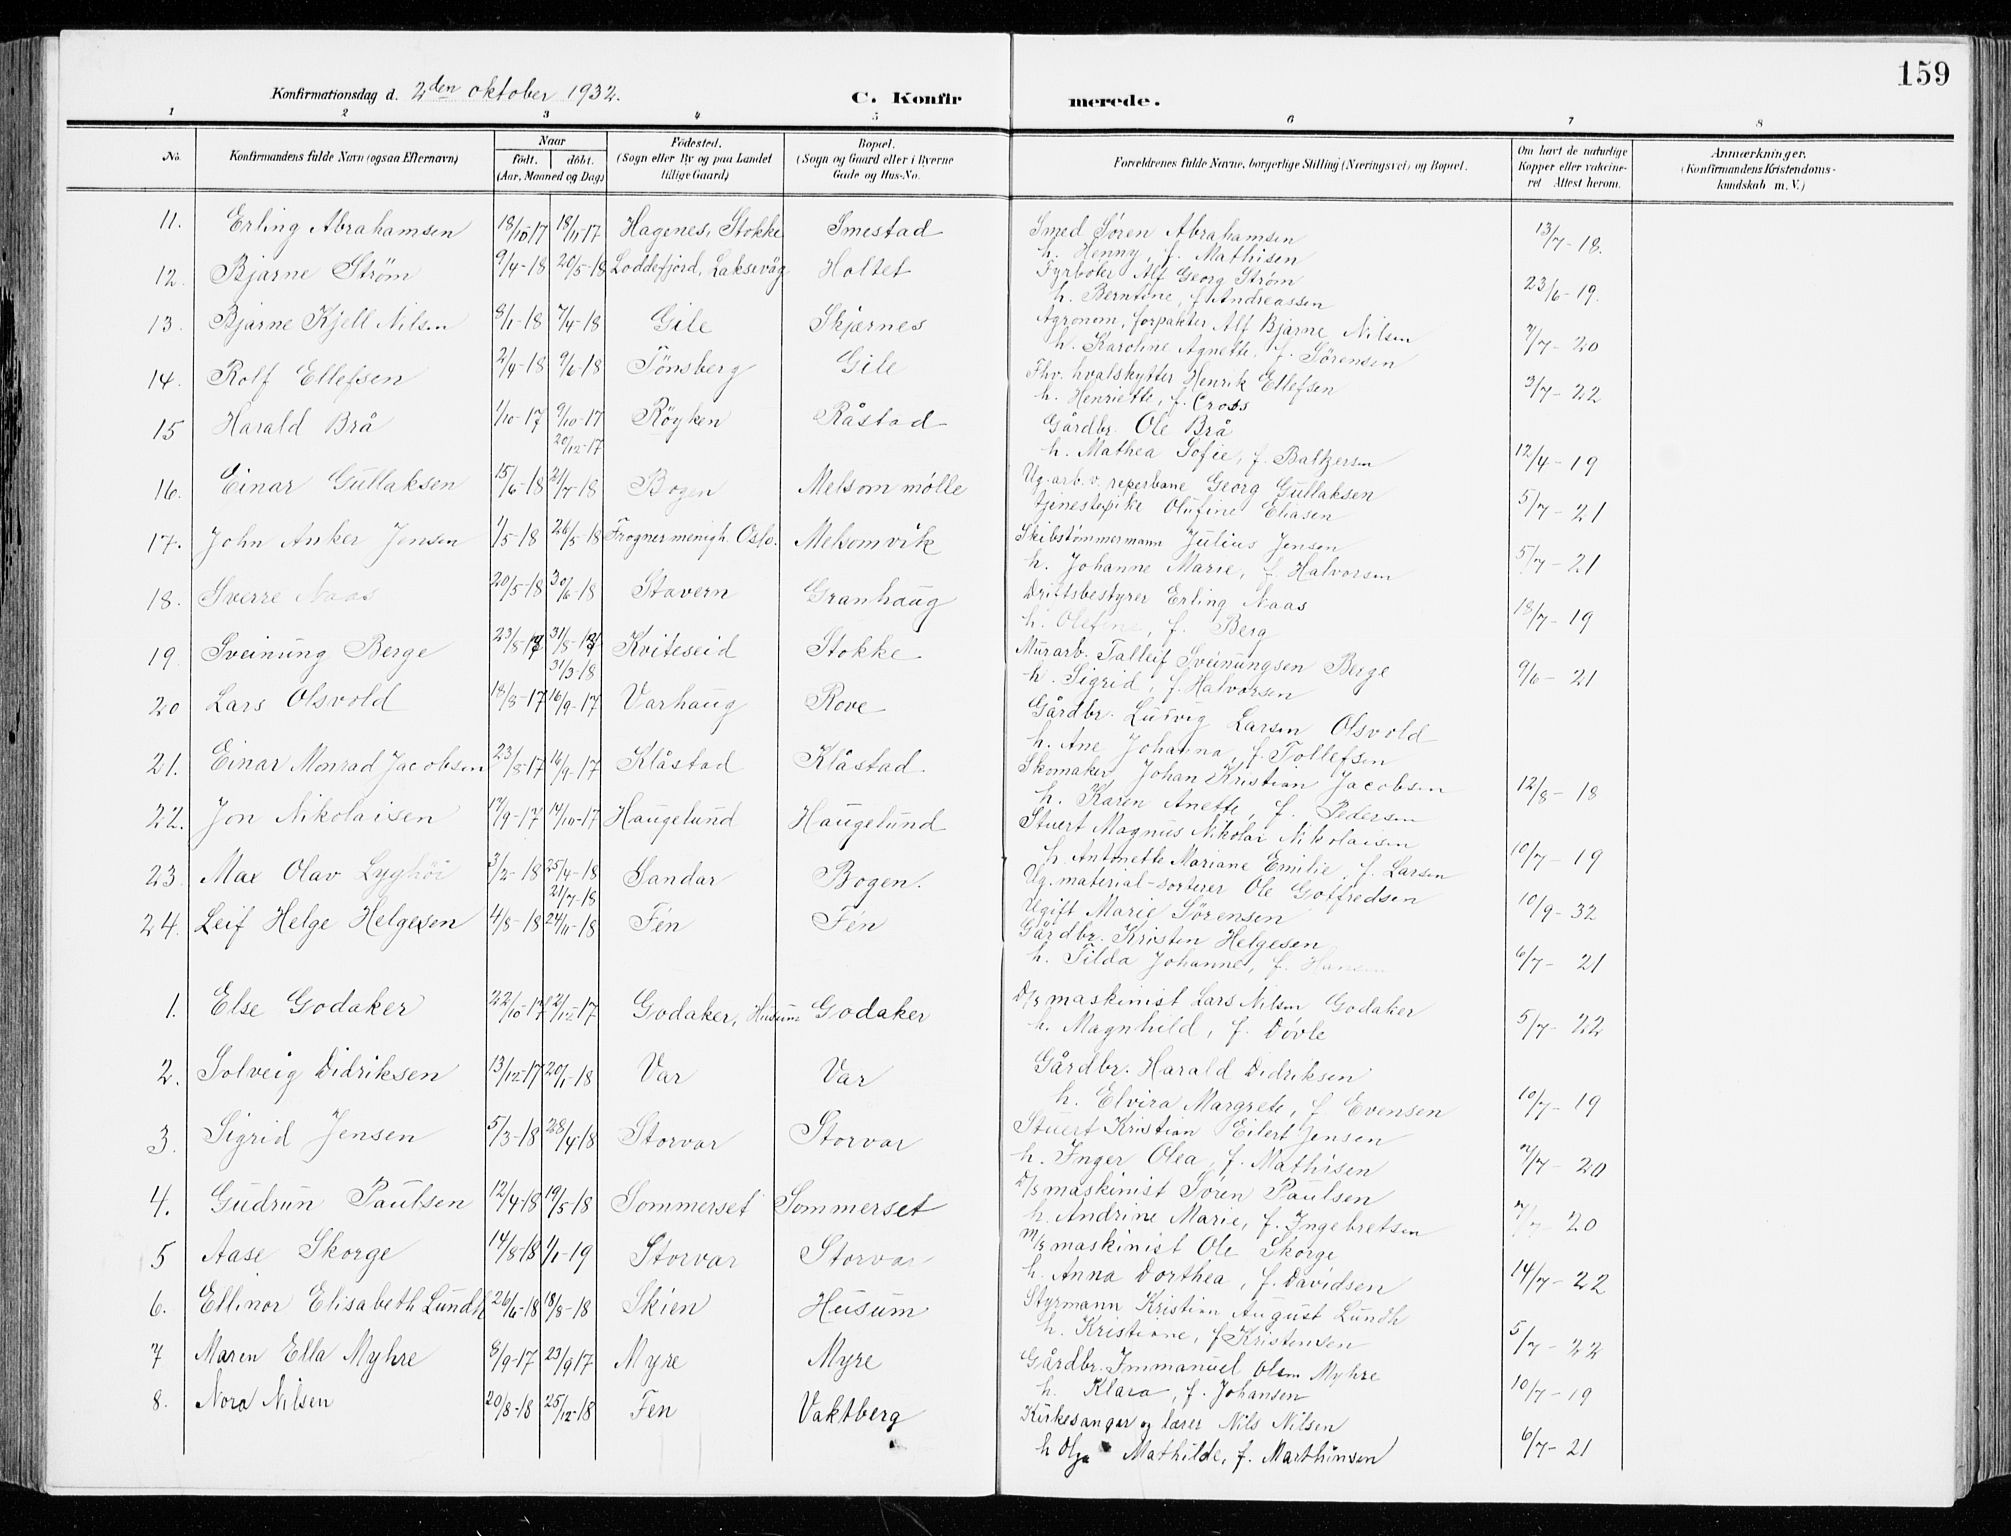 159
Konfirmationsdag d. 2den oktober 1932.
C. Konfirmerede.
1 2 3 4 5 6 7 8
No. Konfirmandens fulde Navn (ogsaa Efternavn) Naar født. døbt. (Aar, Maaned og Dag) Fødested. (Sogn eller By og paa Landet tillige Gaard) Bopæl. (Sogn og Gaard eller i Byerne Gade og Hus-No. Forældrenes fulde Navne, borgerlige Stilling (Næringsvei) og Bopæl. Om havt de naturlige Kopper eller vaccineret Attest herom. Anmærkninger. (Konfirmandens Kristendomskundskab m. V.)
11. Erling Abrahamsen 18/10-17 18/11-17 Hagenes, Stokke Smestad Smed Søren Abrahamsen
h. Henny, f. Mathisen 13/7-18.
12. Bjarne Strøm 9/4-18 20/5-18 Loddefjord, Laksevåg Holtet Fyrbøter Alf Georg Strøm
h. Berntine, f. Andreassen 23/6-19.
13. Bjarne Kjell Nilsen 8/1-18 7/4-18 Gile Skjærnes Agronom, forpakter Alf Bjarne Nilsen
h. Karoline Agnette, f. Sørensen 7/7-20
14. Rolf Ellefsen 2/4-18 9/6-18 Tønsberg Gile Fhv. hvalskytter Henrik Ellefsen
h. Henriette, f. Cross 3/7-22
15 Harald Brå 1/10-17 9/10-17 Røyken Råstad Gårdbr. Ole Brå
20/12-17 h. Mathea Sofie, f. Baltzersen 12/4-19
16. Einar Gullaksen 15/6-18 21/7-18 Bogen Melsom mølle Ug. arb. v. reperbane Georg Gullaksen
tjenestepike Olufine Eliasen 5/7-21
17. John Anker Jensen 1/5-18 26/5-18 Frogner menigh. Oslo. Melsomvik Skibstømmermann Julius Jensen
h. Johanne Marie, f. Halvorsen 5/7-21
18. Sverre Naas 20/5-18 30/6-18 Stavern Granhaug Driftsbestyrer Erling Naas
h. Olefine, f. Berg 18/7-19
19. Sveinung Berge 23/8-17 31/8-17 Kviteseid Stokke Murarb. Talleif Sveinungsen Berge
31/3-18 h. Sigrid, f. Halvorsen 9/6-21
20 Lars Olsvold 18/8-17 16/9-17 Varhaug Rove Gårdbr. Ludvig Larsen Olsvold
h. Ane Johanna, f. Tollefsen
21. Einar Monrad Jacobsen 23/8-17 16/9-17 Klåstad Klåstad. Skomaker Johan Kristian Jacobsen
h. Karen Anette, f. Pedersen 12/8-18
22. Jon Nikolaisen 17/9-17 14/10-17 Haugelund Haugelund Stuert Magnus Nikolai Nikolaisen
h. Antonette Mariane Emilie, f. Larsen 10/7-19
23. Max Olav Lyghöi 3/2-18 25/4-18 Sandar Bogen. Ug. material-sorterer Ole Gotfredsen
21/7-18 Ugift Marie Sørensen 10/9-32
24. Leif Helge Helgesen 4/8-18 24/11-18 Fén Fén Gårdbr. Kristen Helgesen
h. Tilda Johanne, f. Hansen 6/7-21
1. Else Godaker 22/10-17 2/12-17 Godaker, Husum Godaker D/s maskinist Lars Nilsen Godaker
h. Magnhild, f. Døvle 5/7-22
2. Solveig Didriksen 13/12-17 20/1-18 Var Var Gårdbr. Harald Didriksen
h. Elvira Margrete, f. Evensen 10/7-19
3. Sigrid Jensen 5/3-18 28/4-18 Storvar Storvar Stuert Kristian Eilert Jensen
h. Inger Olea, f. Mathisen 7/7-20
4. Gudrun Paulsen 12/4-18 19/5-18 Sommerset Sommerset D/s maskinist Søren Paulsen
h. Andrine Marie, f. Ingebretsen 7/7-20
5 Aase Skorge 14/8-18 1/1-19 Storvar Storvar m/s maskinist Ole Skorge
h. Anna Dorthea, f. Davidsen 14/7-22
6. Ellinor Elisabeth Lundh 26/6-18 18/8-18 Skien Husum Styrmann Kristian August Lundh
h. Kristiane, f. Kristensen 5/7-22
7 Maren Ella Myhre 8/9-17 23/9-17 Myre Myre Gårdbr. Immanuel Olsen Myhre
h. Klara, f. Johansen 10/7-19
8. Nora Nilsen 20/8-18 25/12-18 Fen Vaktberg Kirkesanger og lærer Nils Nilsen
h Olga Mathilde, f. Marthinsen 6/7-21